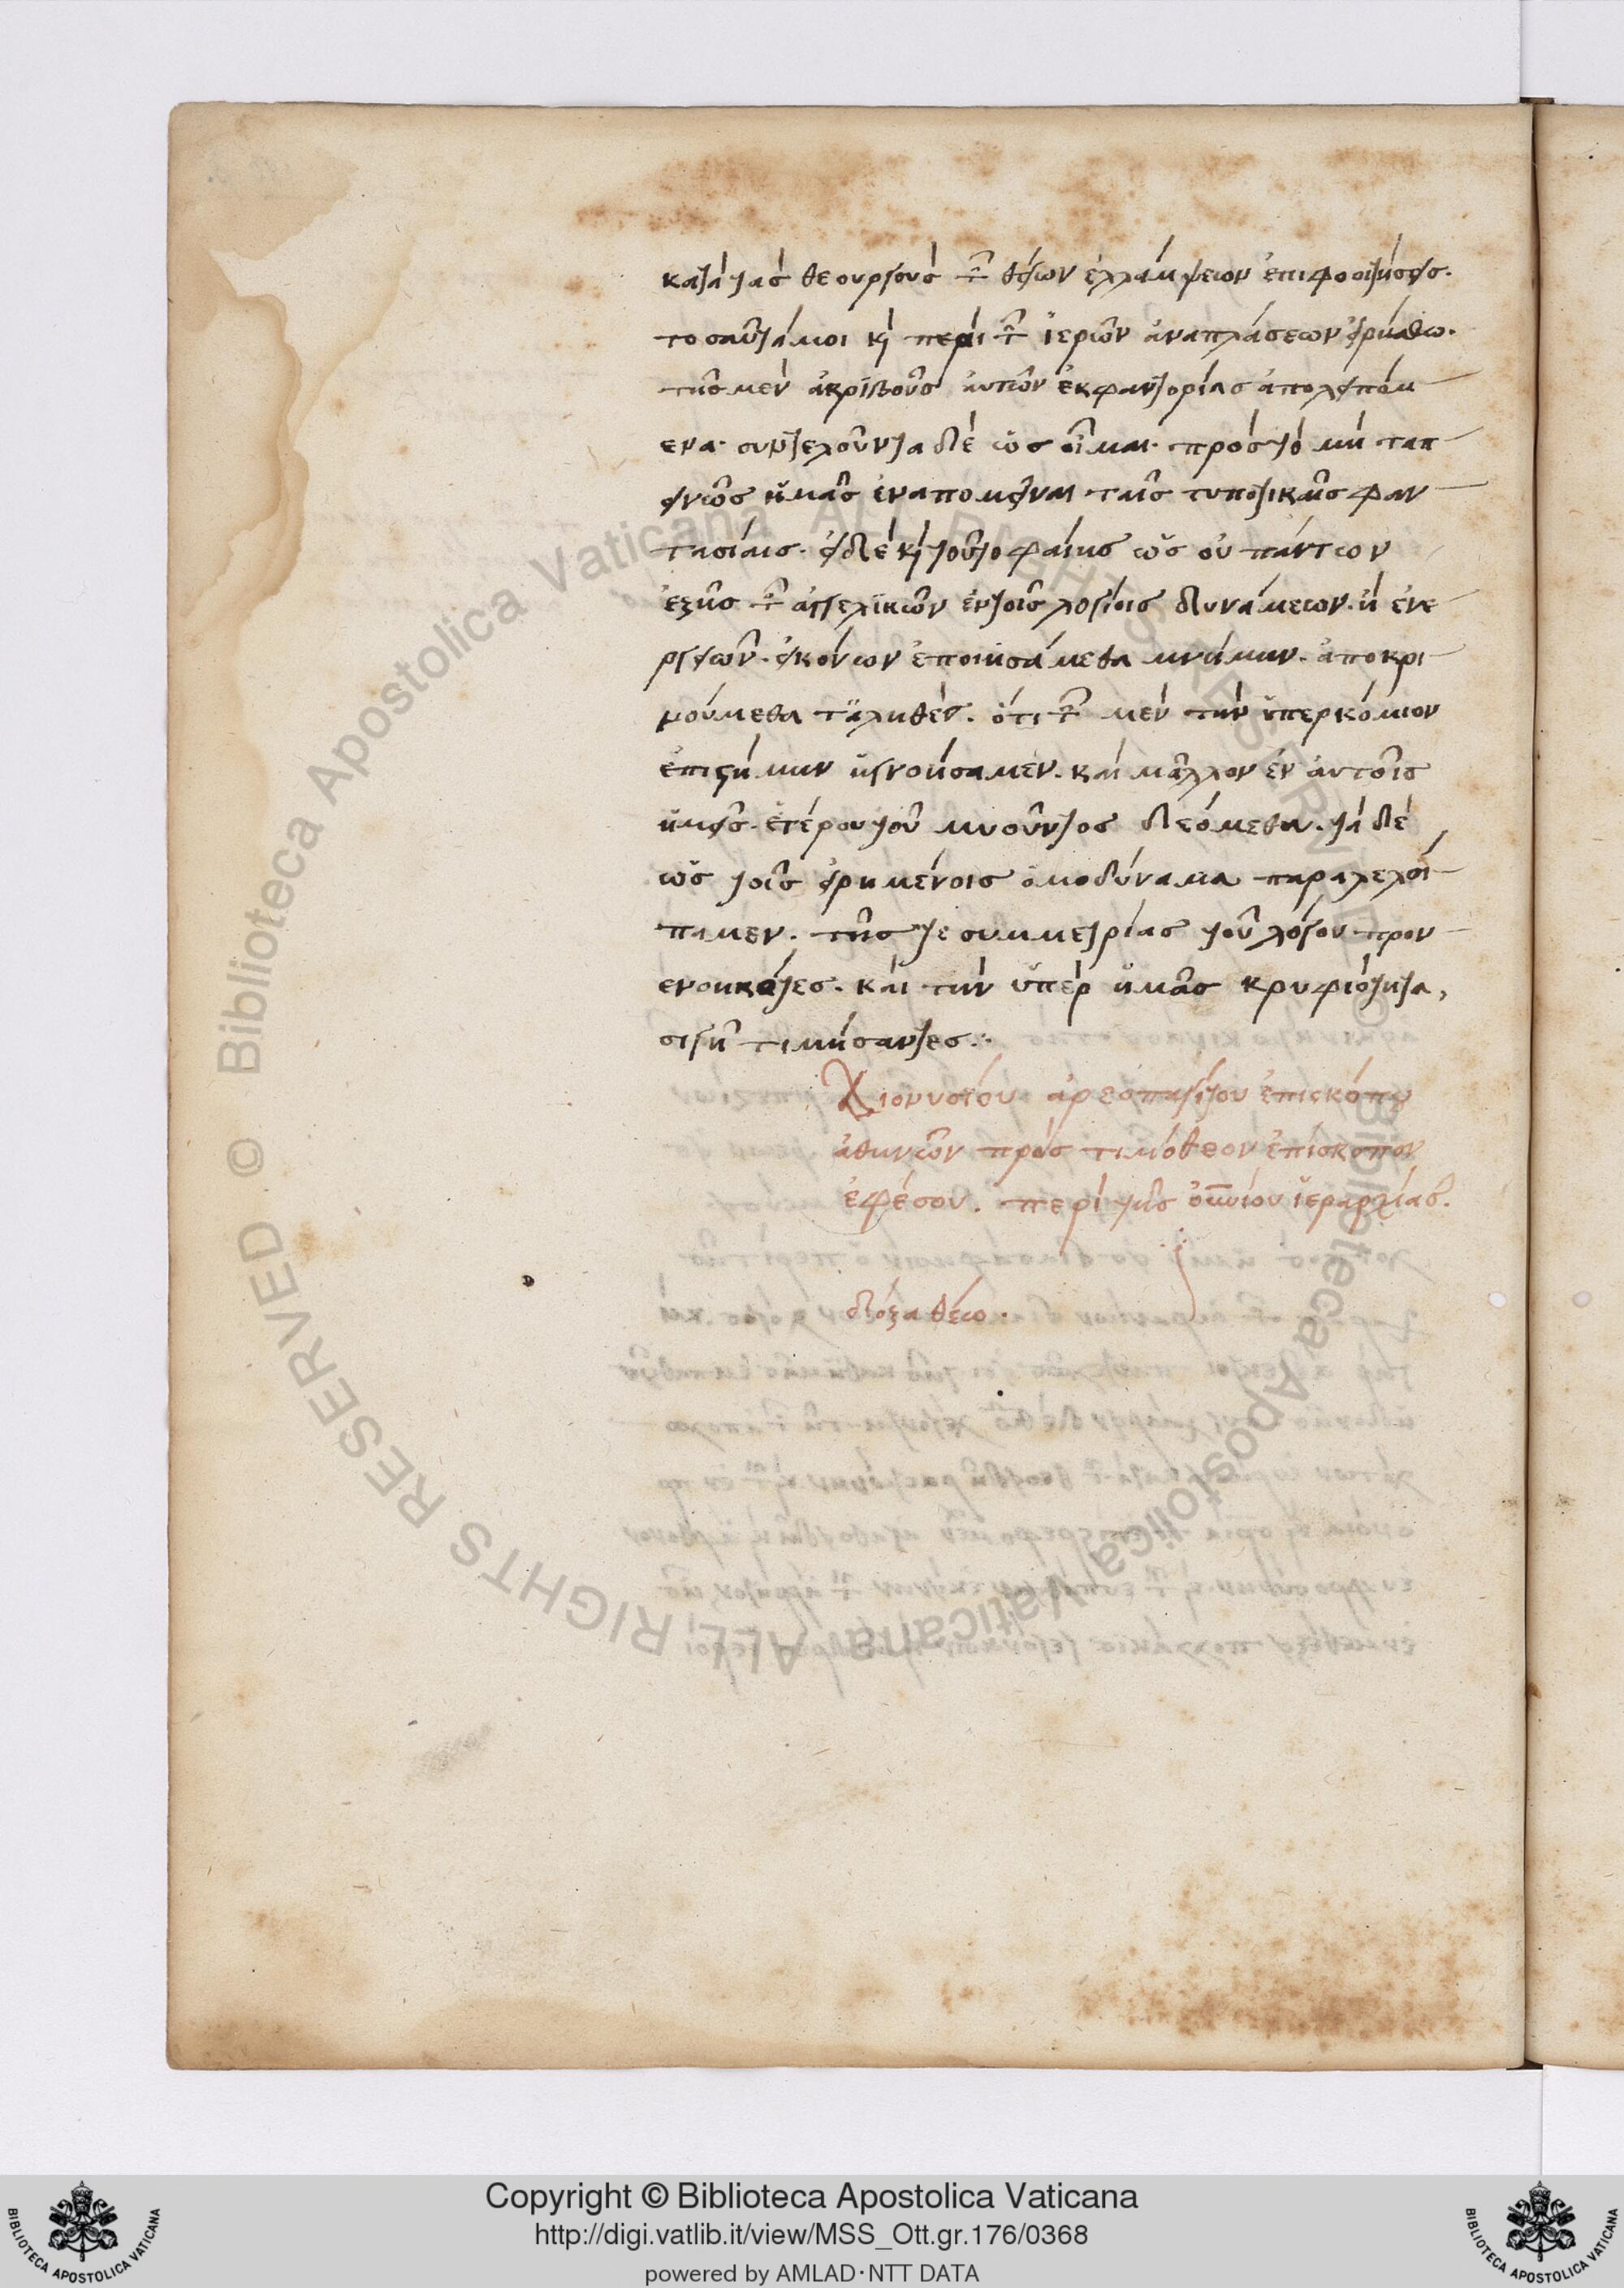 κατὰ τὰς θεουργοὺς τῶν θείων ἐλλάμψεων ἐπιφοιτήσεις.
τοσαῦτά μοι κὶ περὶ τῶν ἱερῶν ἀναπλάσεων εἰρήσθω.
τῆς μὲν ἀκριβοῦς αὐτῶν ἐκφαντορίας ἀπολειπόμ
ενα. συντελοῦντα δὲ ὡς οἶμαι. πρὸς τὸ μὴ ταπ
εινῶς ἡμᾶς ἐναπομεῖναι ταῖς τυπωτικαῖς φαν
τασίαις. εἰ δὲ κὶ τοῦτο φαίης ὡς οὐ πάντων
ἑξῆς τῶν ἀγγελϊκῶν ἐν τοῖς λογίοις δυνάμεων. ἢ ἐνε
ργειῶν. εἰκόνων ἐποιησάμεθα μνήμην. ἀποκρι
νούμεθα τἀληθὲς. ὅτι τῶν μὲν τὴν ὑπερκόσμιον
ἐπιστήμην ἠγνοήσαμεν. καὶ μᾶλλον ἐν αὐτοῖς
ἡμεῖς. ἑτέρου τοῦ μυοῦντος δεόμεθα. τὰ δὲ
ὡς τοῖς εἰρημένοις ὁμοδύναμα παραλελοί
παμεν. τῆς τε συμμετρίας τοῦ λόγου προν
ενοηκότες. καὶ τὴν ὑπὲρ ἡμᾶς κρυφιότητα,
σιγῇ τιμήσαντες:·
Διονυσίου ἀρεοπαγίτου ἐπισκόπου
ἀθηνῶν πρὸς τιμόθεον ἐπίσκοπον
ἐφέσου. περὶ τῆς οὐνίου ἱεραρχίας.
δόξα θέω.
Copyright © Biblioteca Apostolica Vaticana
http://digi.vatlib.it/view/MSS_Ott.gr.176/0368
powered by AMLAD·NTT DATA
BIBLIOTECA APOSTOLICA VATICANA
BIBLIOTECA APOSTOLICA VATICANA
© Biblioteca Apostolica Vaticana ALL RIGHTS RESERVED
© Biblioteca Apostolica Vaticana ALL RIGHTS RESERVED